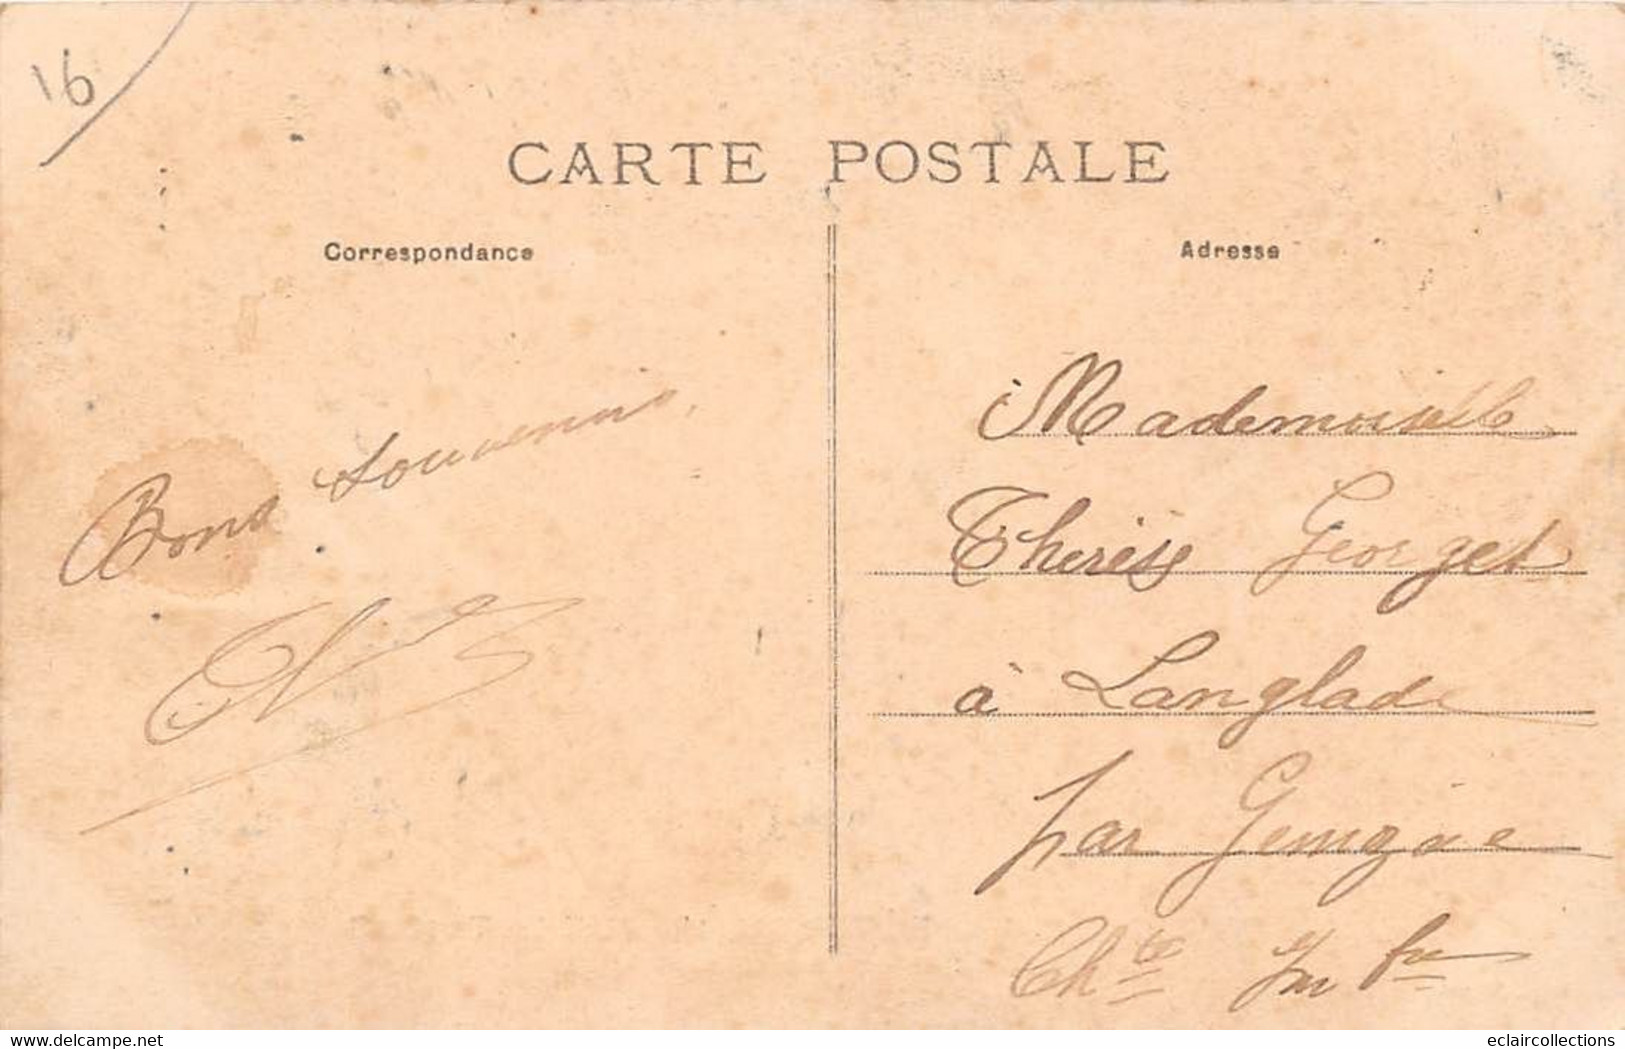 16
CARTE POSTALE
Correspondance
Adresse
Bons souvenirs,
Mademoiselle
Thérèse Georget
à Langlade
par Gemozac
Ch^te Inf^re
www.delcampe.net
eclaircollections